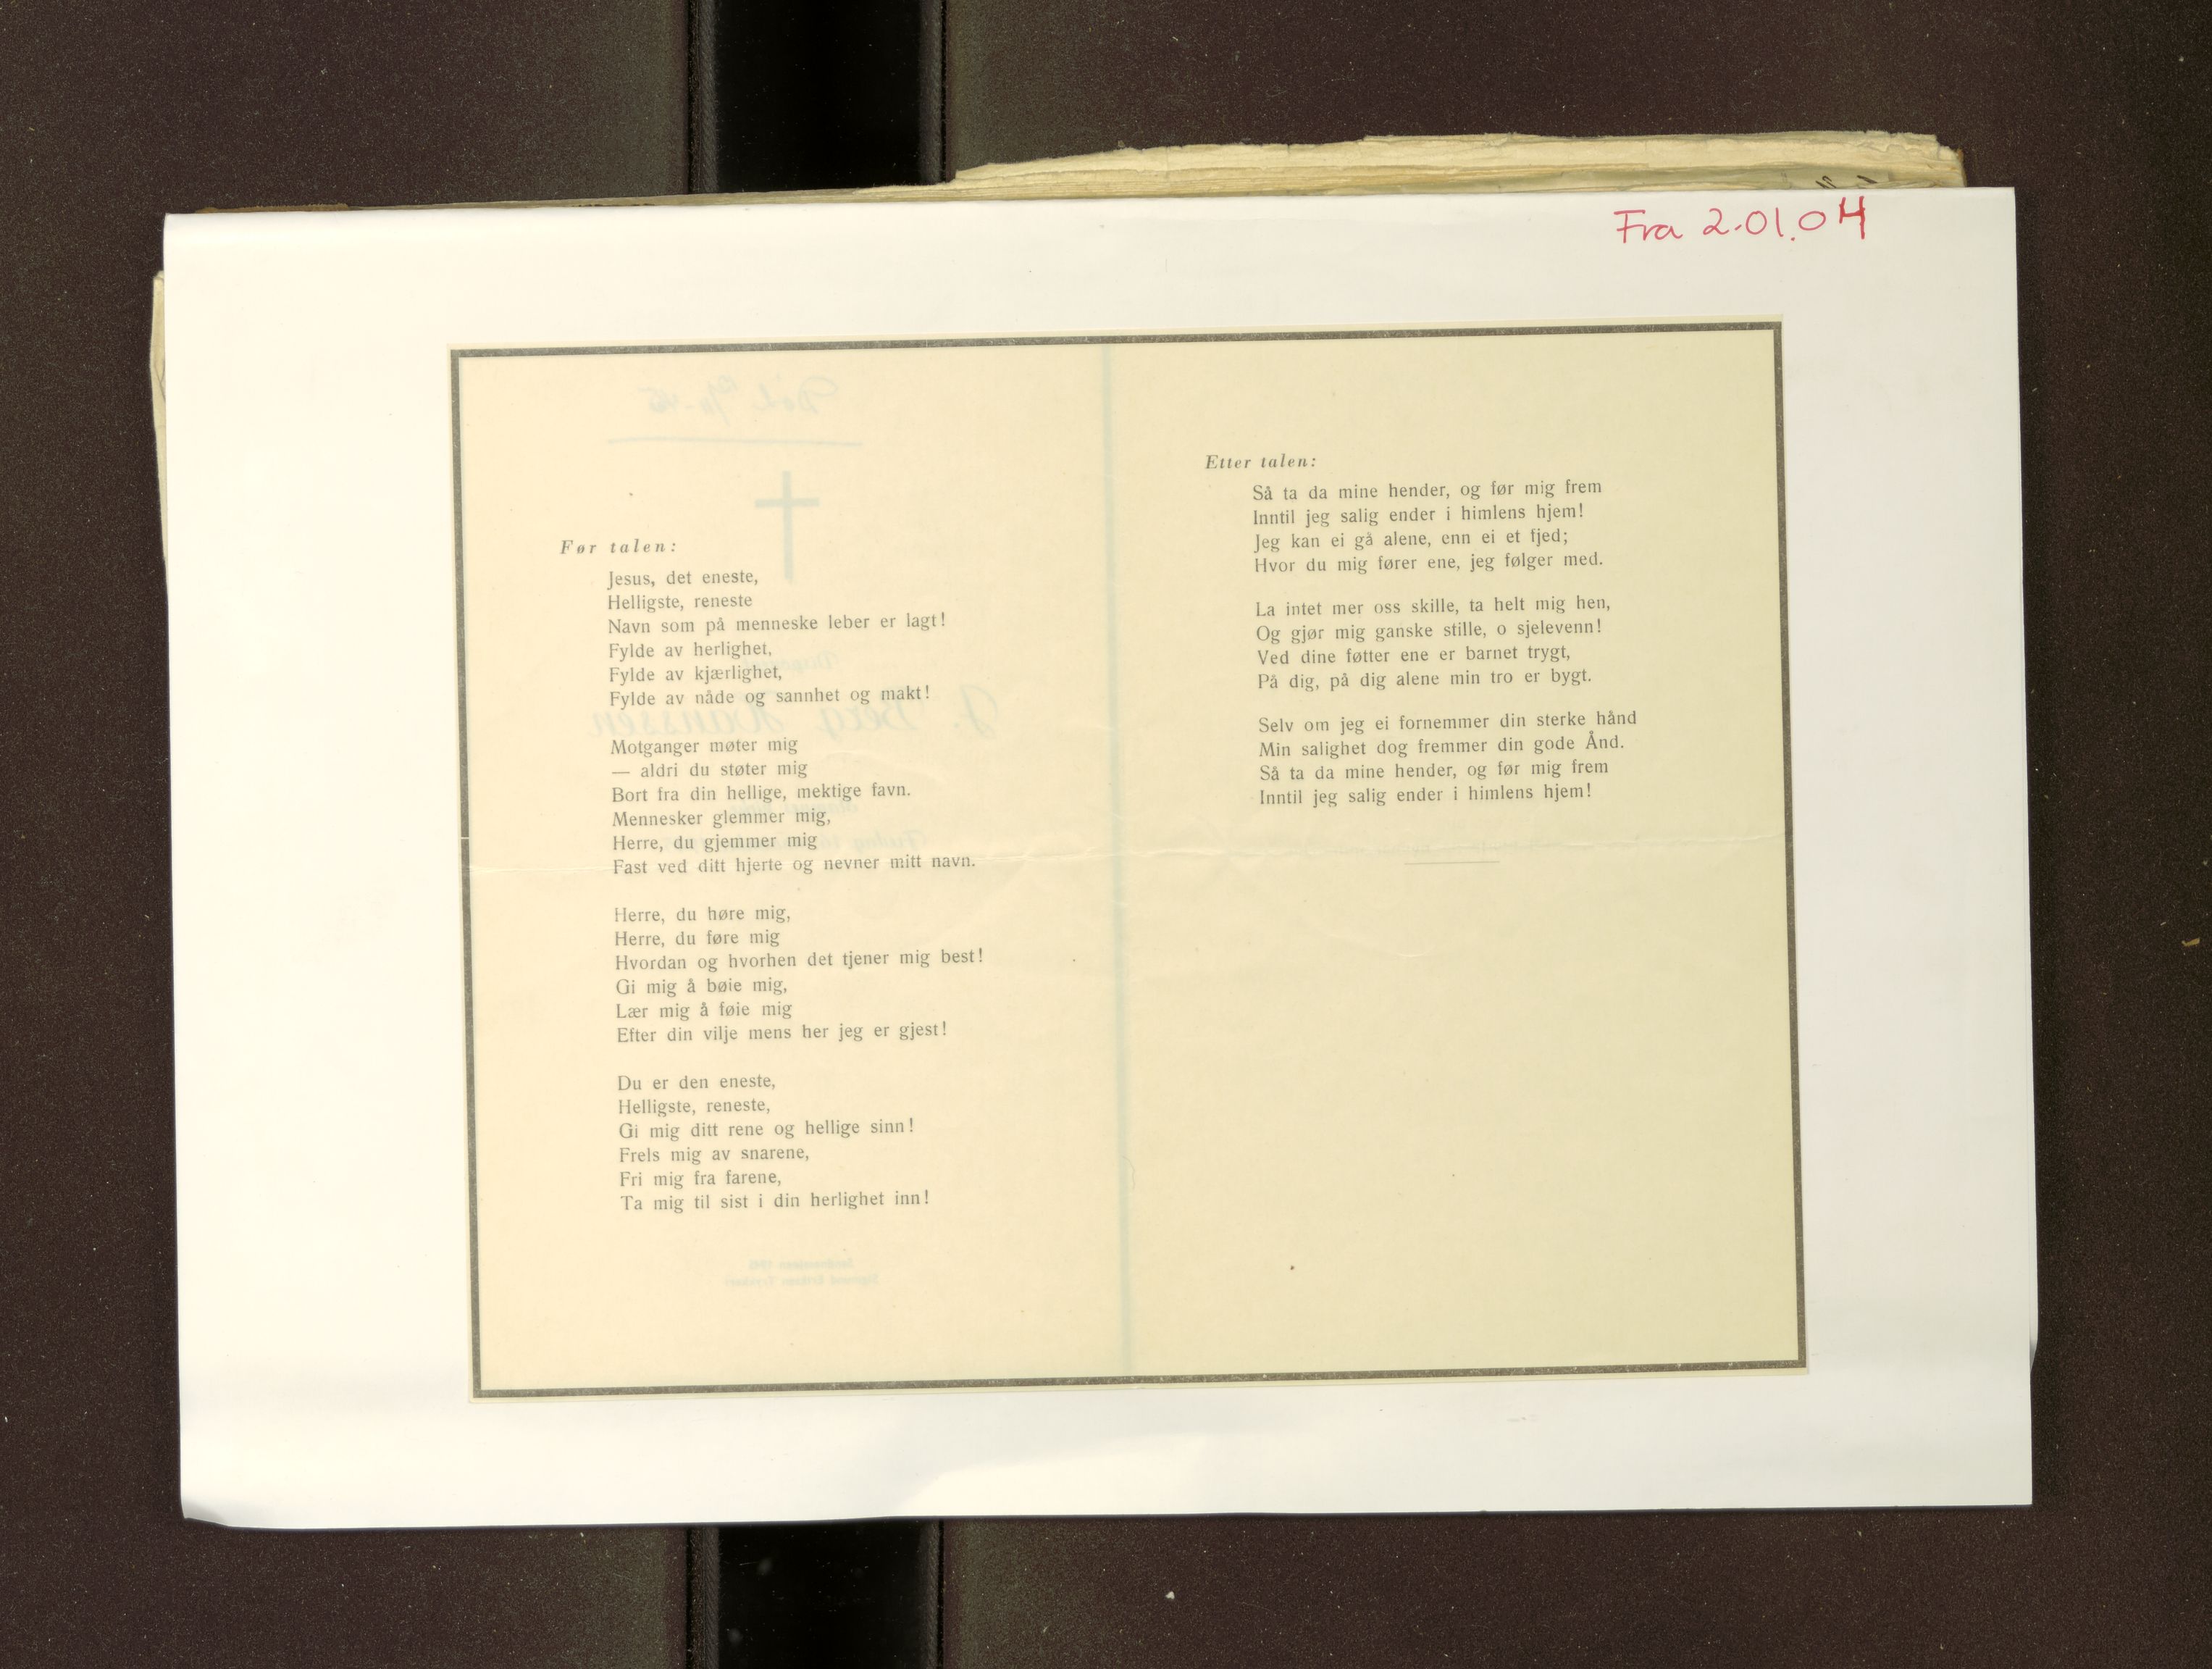 Fra 2.01.04
Før talen:
Jesus, det eneste,
Helligste, reneste
Navn som på menneske leber er lagt!
Fylde av herlighet,
Fylde av kjærlighet,
Fylde av nåde og sannhet og makt!
Motganger møter mig
— aldri du støter mig
Bort fra din hellige, mektige favn.
Mennesker glemmer mig,
Herre, du gjemmer mig
Fast ved ditt hjerte og nevner mitt navn.
Herre, du høre mig,
Herre, du føre mig
Hvordan og hvorhen det tjener mig best!
Gi mig å bøie mig,
Lær mig å føie mig
Efter din vilje mens her jeg er gjest!
Du er den eneste,
Helligste, reneste,
Gi mig ditt rene og hellige sinn!
Frels mig av snarene,
Fri mig fra farene,
Ta mig til sist i din herlighet inn!
Etter talen:
Så ta da mine hender, og før mig frem
Inntil jeg salig ender i himlens hjem!
Jeg kan ei gå alene, enn ei et fjed;
Hvor du mig fører ene, jeg følger med.
La intet mer oss skille, ta helt mig hen,
Og gjør mig ganske stille, o sjelevenn!
Ved dine føtter ene er barnet trygt,
På dig, på dig alene min tro er bygt.
Selv om jeg ei fornemmer din sterke hånd
Min salighet dog fremmer din gode Ånd.
Så ta da mine hender, og før mig frem
Inntil jeg salig ender i himlens hjem!